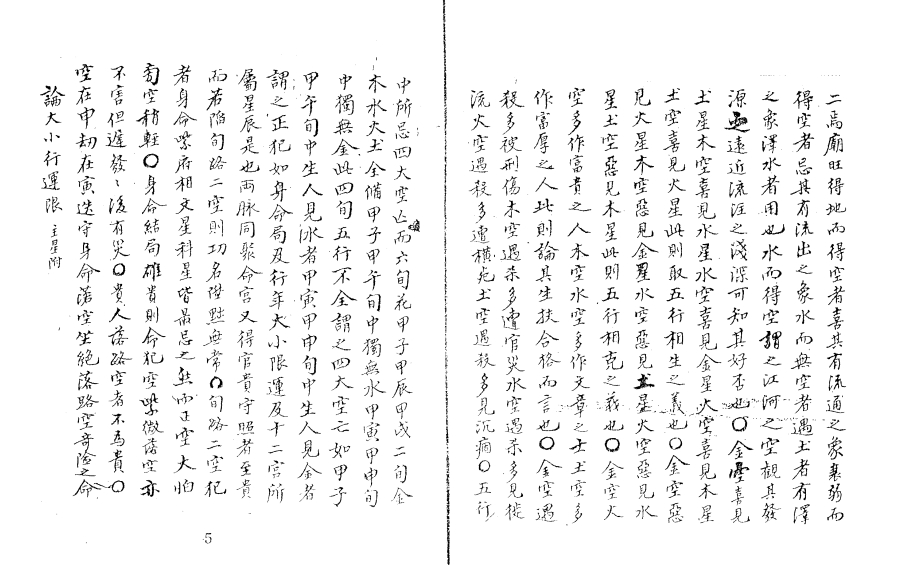 二焉廟旺得地而得空者喜其有流通之象衰弱而
得空者忌其有流出之象水而無空者遇土者有澤
之象澤水者用也水而得空謂之江河之空觀其發
源之遠近流涯之淺深可知其好否也〇金空喜見
土星木空喜見水星水空喜見金星火空喜見木星
土空喜見火星此則取五行相生之義也〇金空惡
見火星木空惡見金星水空惡見土星火空惡見水
星土空惡見木星此則五行相克之義也〇金空火
空多作富貴之人木空水空多作文章之士土空多
作富厚之人此則論其生扶合格而言也〇金空遇
殺多被刑傷木空遇杀多遭官災水空遇杀多見徙
流火空遇殺多遭橫死土空遇殺多見沉痼〇五行
中所忌四大空亡而六旬花甲子甲辰甲戌二旬金
木水火土全備甲子甲午旬中獨無水甲寅甲申旬
中獨無金此四旬五行不全謂之四大空亡如甲子
甲午旬中生人見水者甲寅甲申旬中生人見金者
謂之正犯如身命局及行年大小限運及十二宮所
屬星辰是也両脉同聚命宮又得官貴守照者至貴
而若陷旬路二空則功名陞黜無常〇旬路二空犯
者身命紫府相文星科星皆最忌之然而正空大怕
旬空稍輕〇身命結局雄貴則命犯空紫微落空亦
不害但遲發〻後有災〇貴人落路空者不為貴〇
空在申劫在寅迭守身命落空坐絕落路空奇险之命
論大小行運限 主星附
5